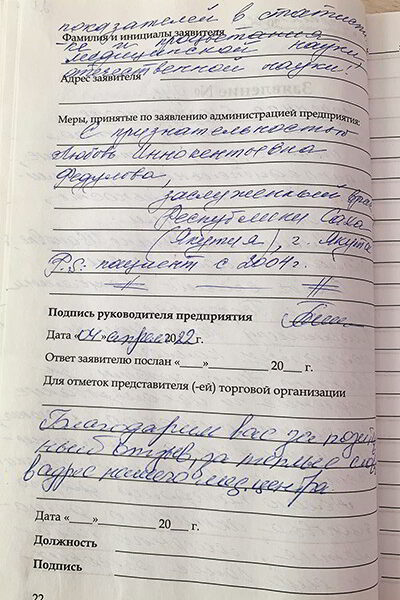 показателей в статист
Фамилия и инициалы заявителя
ке и процветания
медицинской науки,
отечественной науки!
Адрес заявителя
Меры, принятые по заявлению администрацией предприятия:
С признательностью
Любовь Иннокентьевна
Федулова,
заслуженный врач
Республики Саха
(Якутия), г. Якутс
P.S: пациент с 2004г.
Подпись руководителя предприятия
Дата «04» апреля 2022 г.
Ответ заявителю послан «___»________ 20___ г.
Для отметок представителя (-ей) торговой организации
Благодарим вас за позитив
ный отзыв, за теплые слова
в адрес нашего мед.центра
Дата «___»________ 20___ г.
Должность
Подпись
22